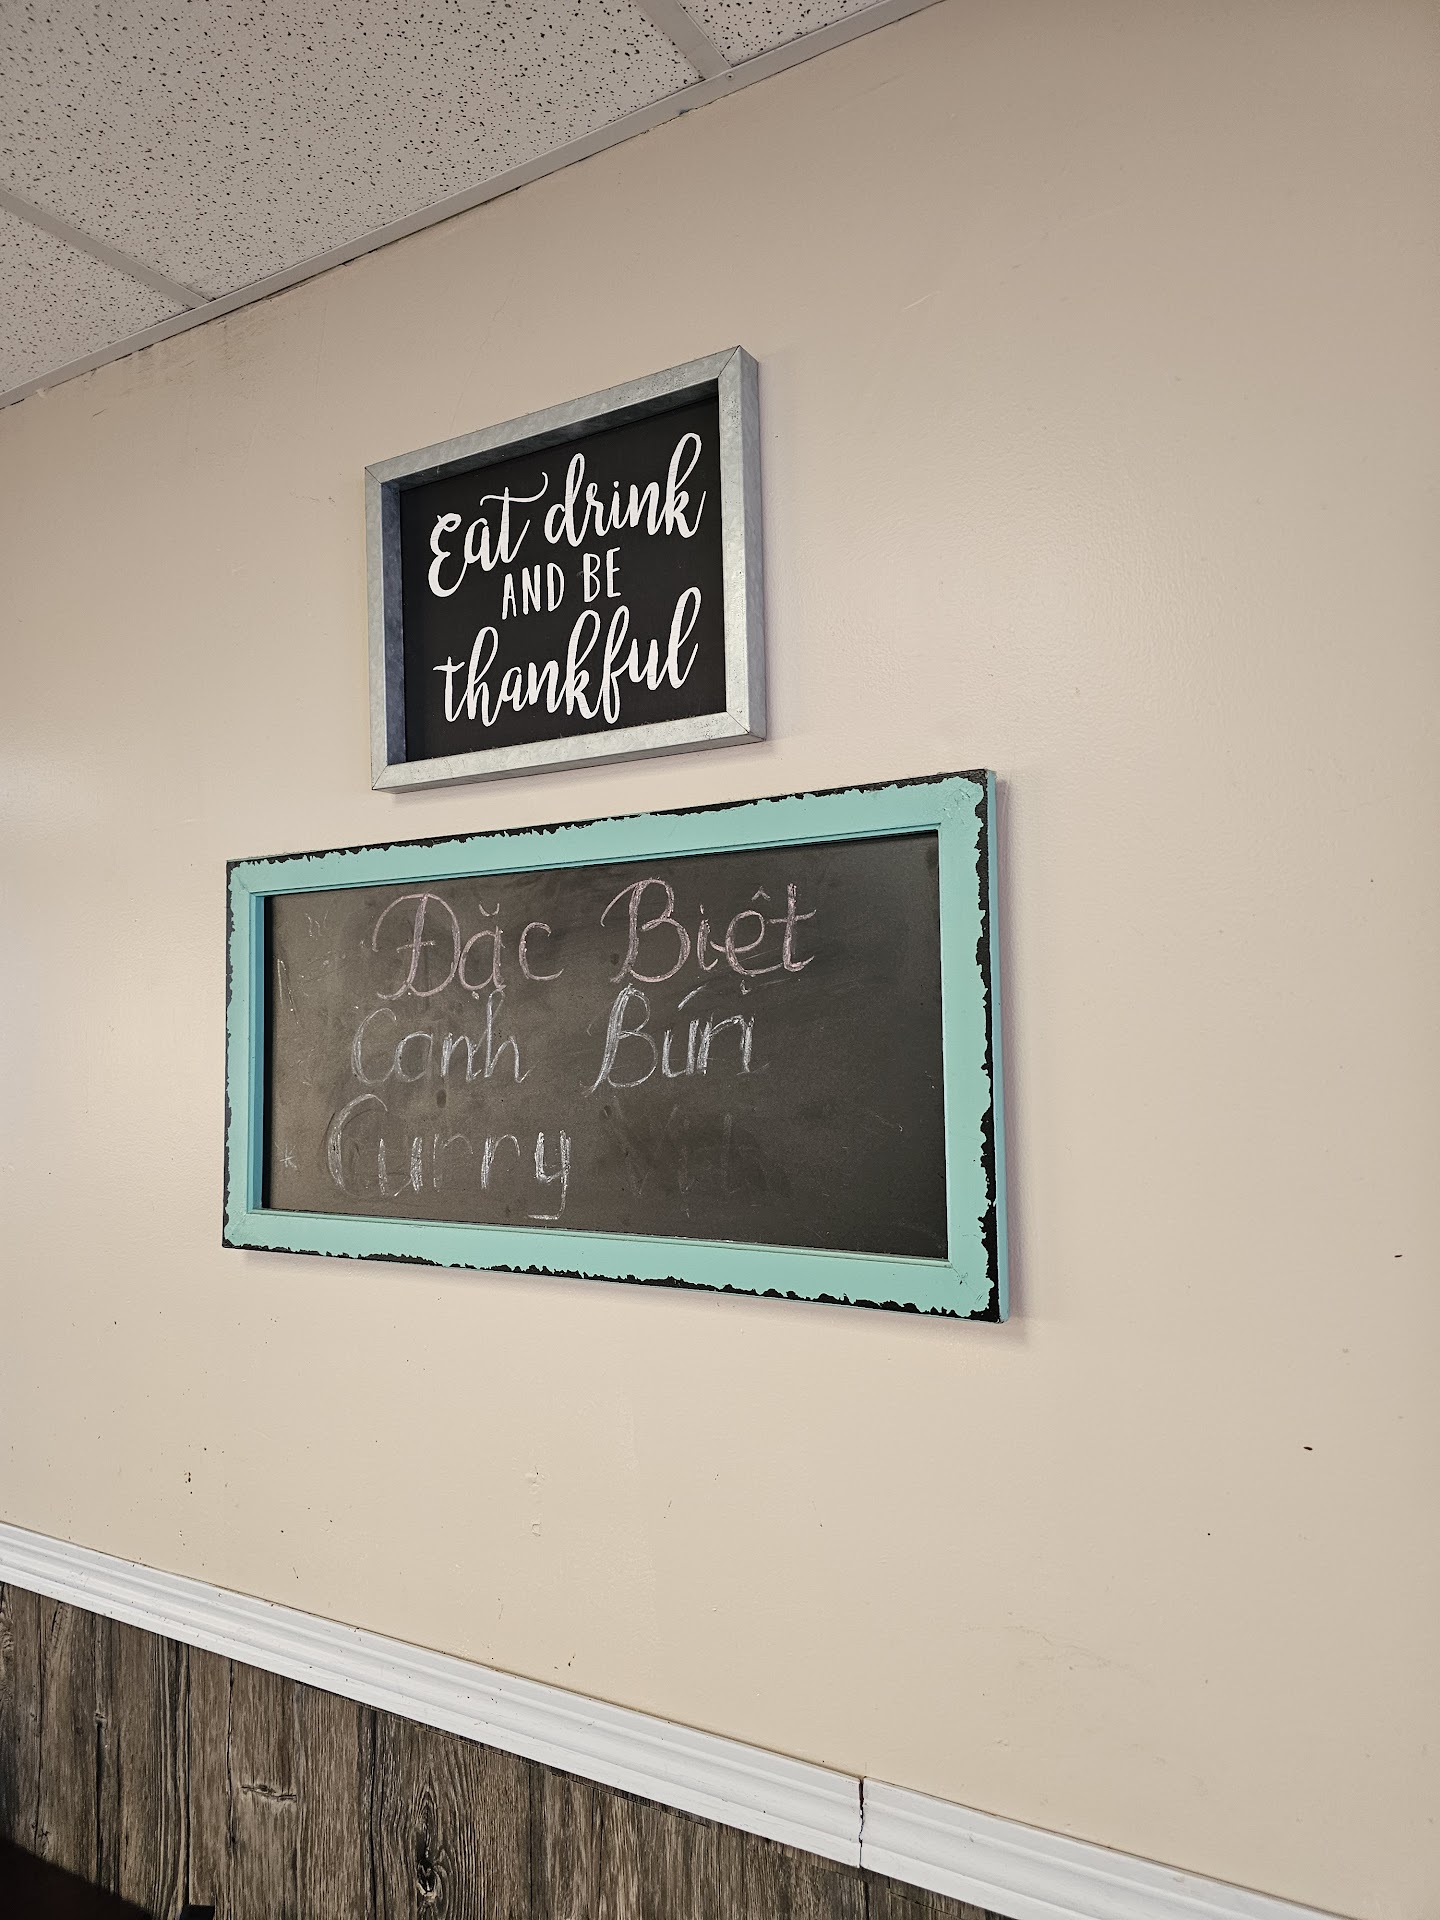 Eat drink
AND BE
thankful
Đặc Biệt
Canh Bún
Curry